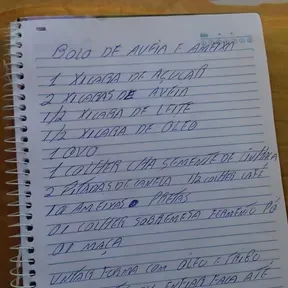 BOLO DE AVEIA E AMEIXA
1 XICARA DE AÇUCAR
2 XICARAS DE AVEIA
1/2 XICARA DE LEITE
1/2 XICARA DE OLEO
1 OVO
1 COLHER CHA SEMENTE DE LINHAÇA
2 PITADAS DE CANELA 1/2 COLHER CAFÉ
10 AMEIXAS PRETAS
01 COLHER SOBREMESA FERMENTO PÓ
01 MAÇA
UNTAR FORMA COM ÓLEO E TRIGO
ENFIAR FACA ATÉ